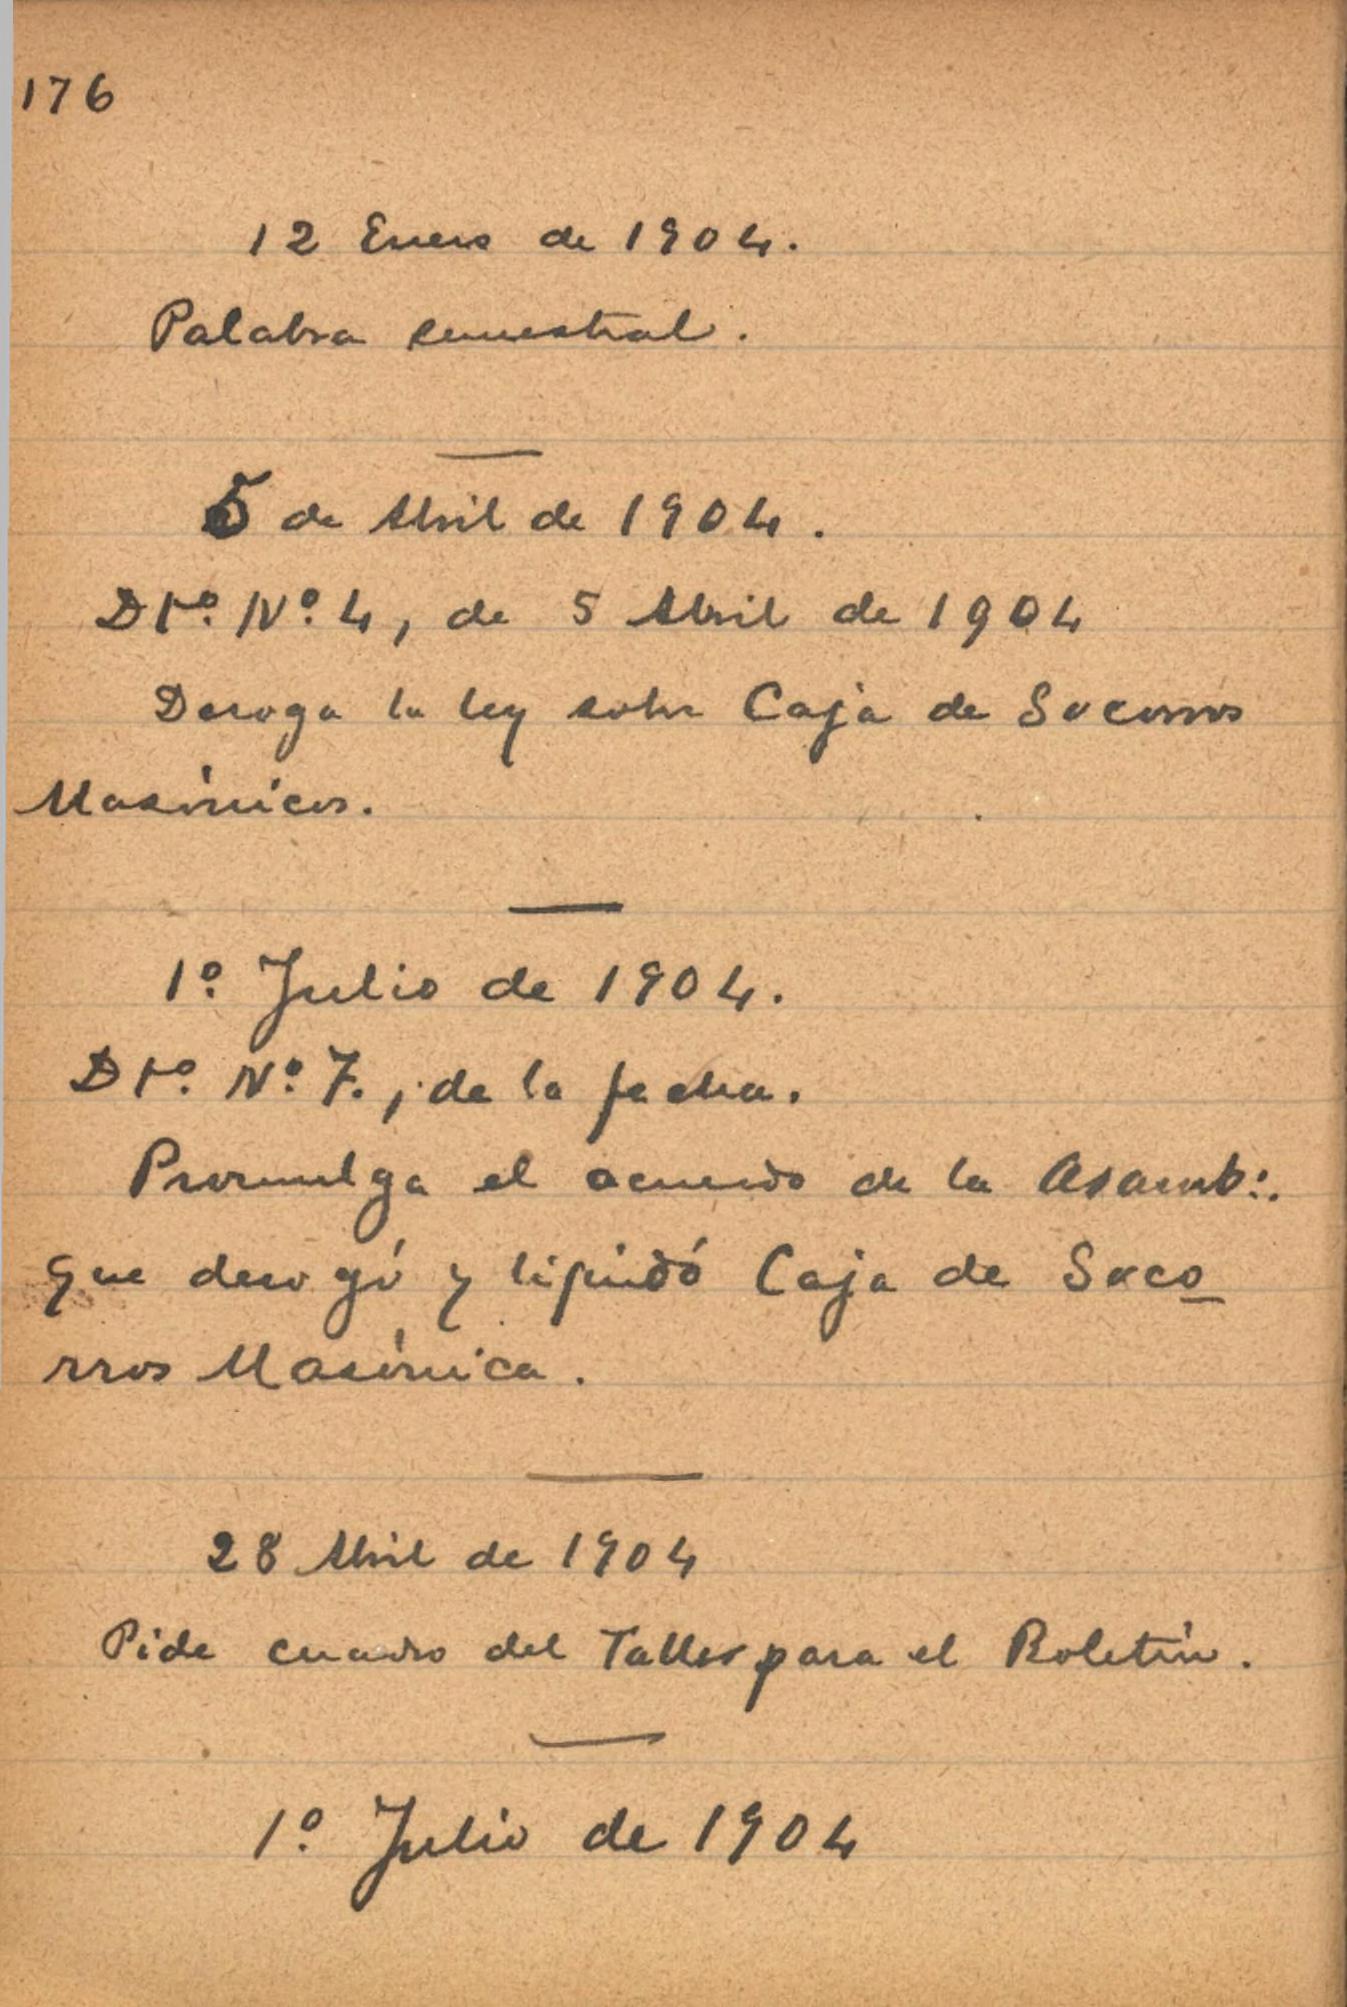 176
12 Enero de 1904.
Palabra semestral.
5 de Abril de 1904.
Dto. Nº. 4, de 5 Abril de 1904
Deroga la ley sobre Caja de Socorros
Masónicos.
1º. Julio de 1904.
Dto. Nº. 7., de la fecha.
Promulga el acuerdo de la Asamb∴
que derogó y liquidó Caja de Soco
rros Masónica.
28 Abril de 1904
Pide cuadro del Taller para el Boletín.
1º. Julio de 1904